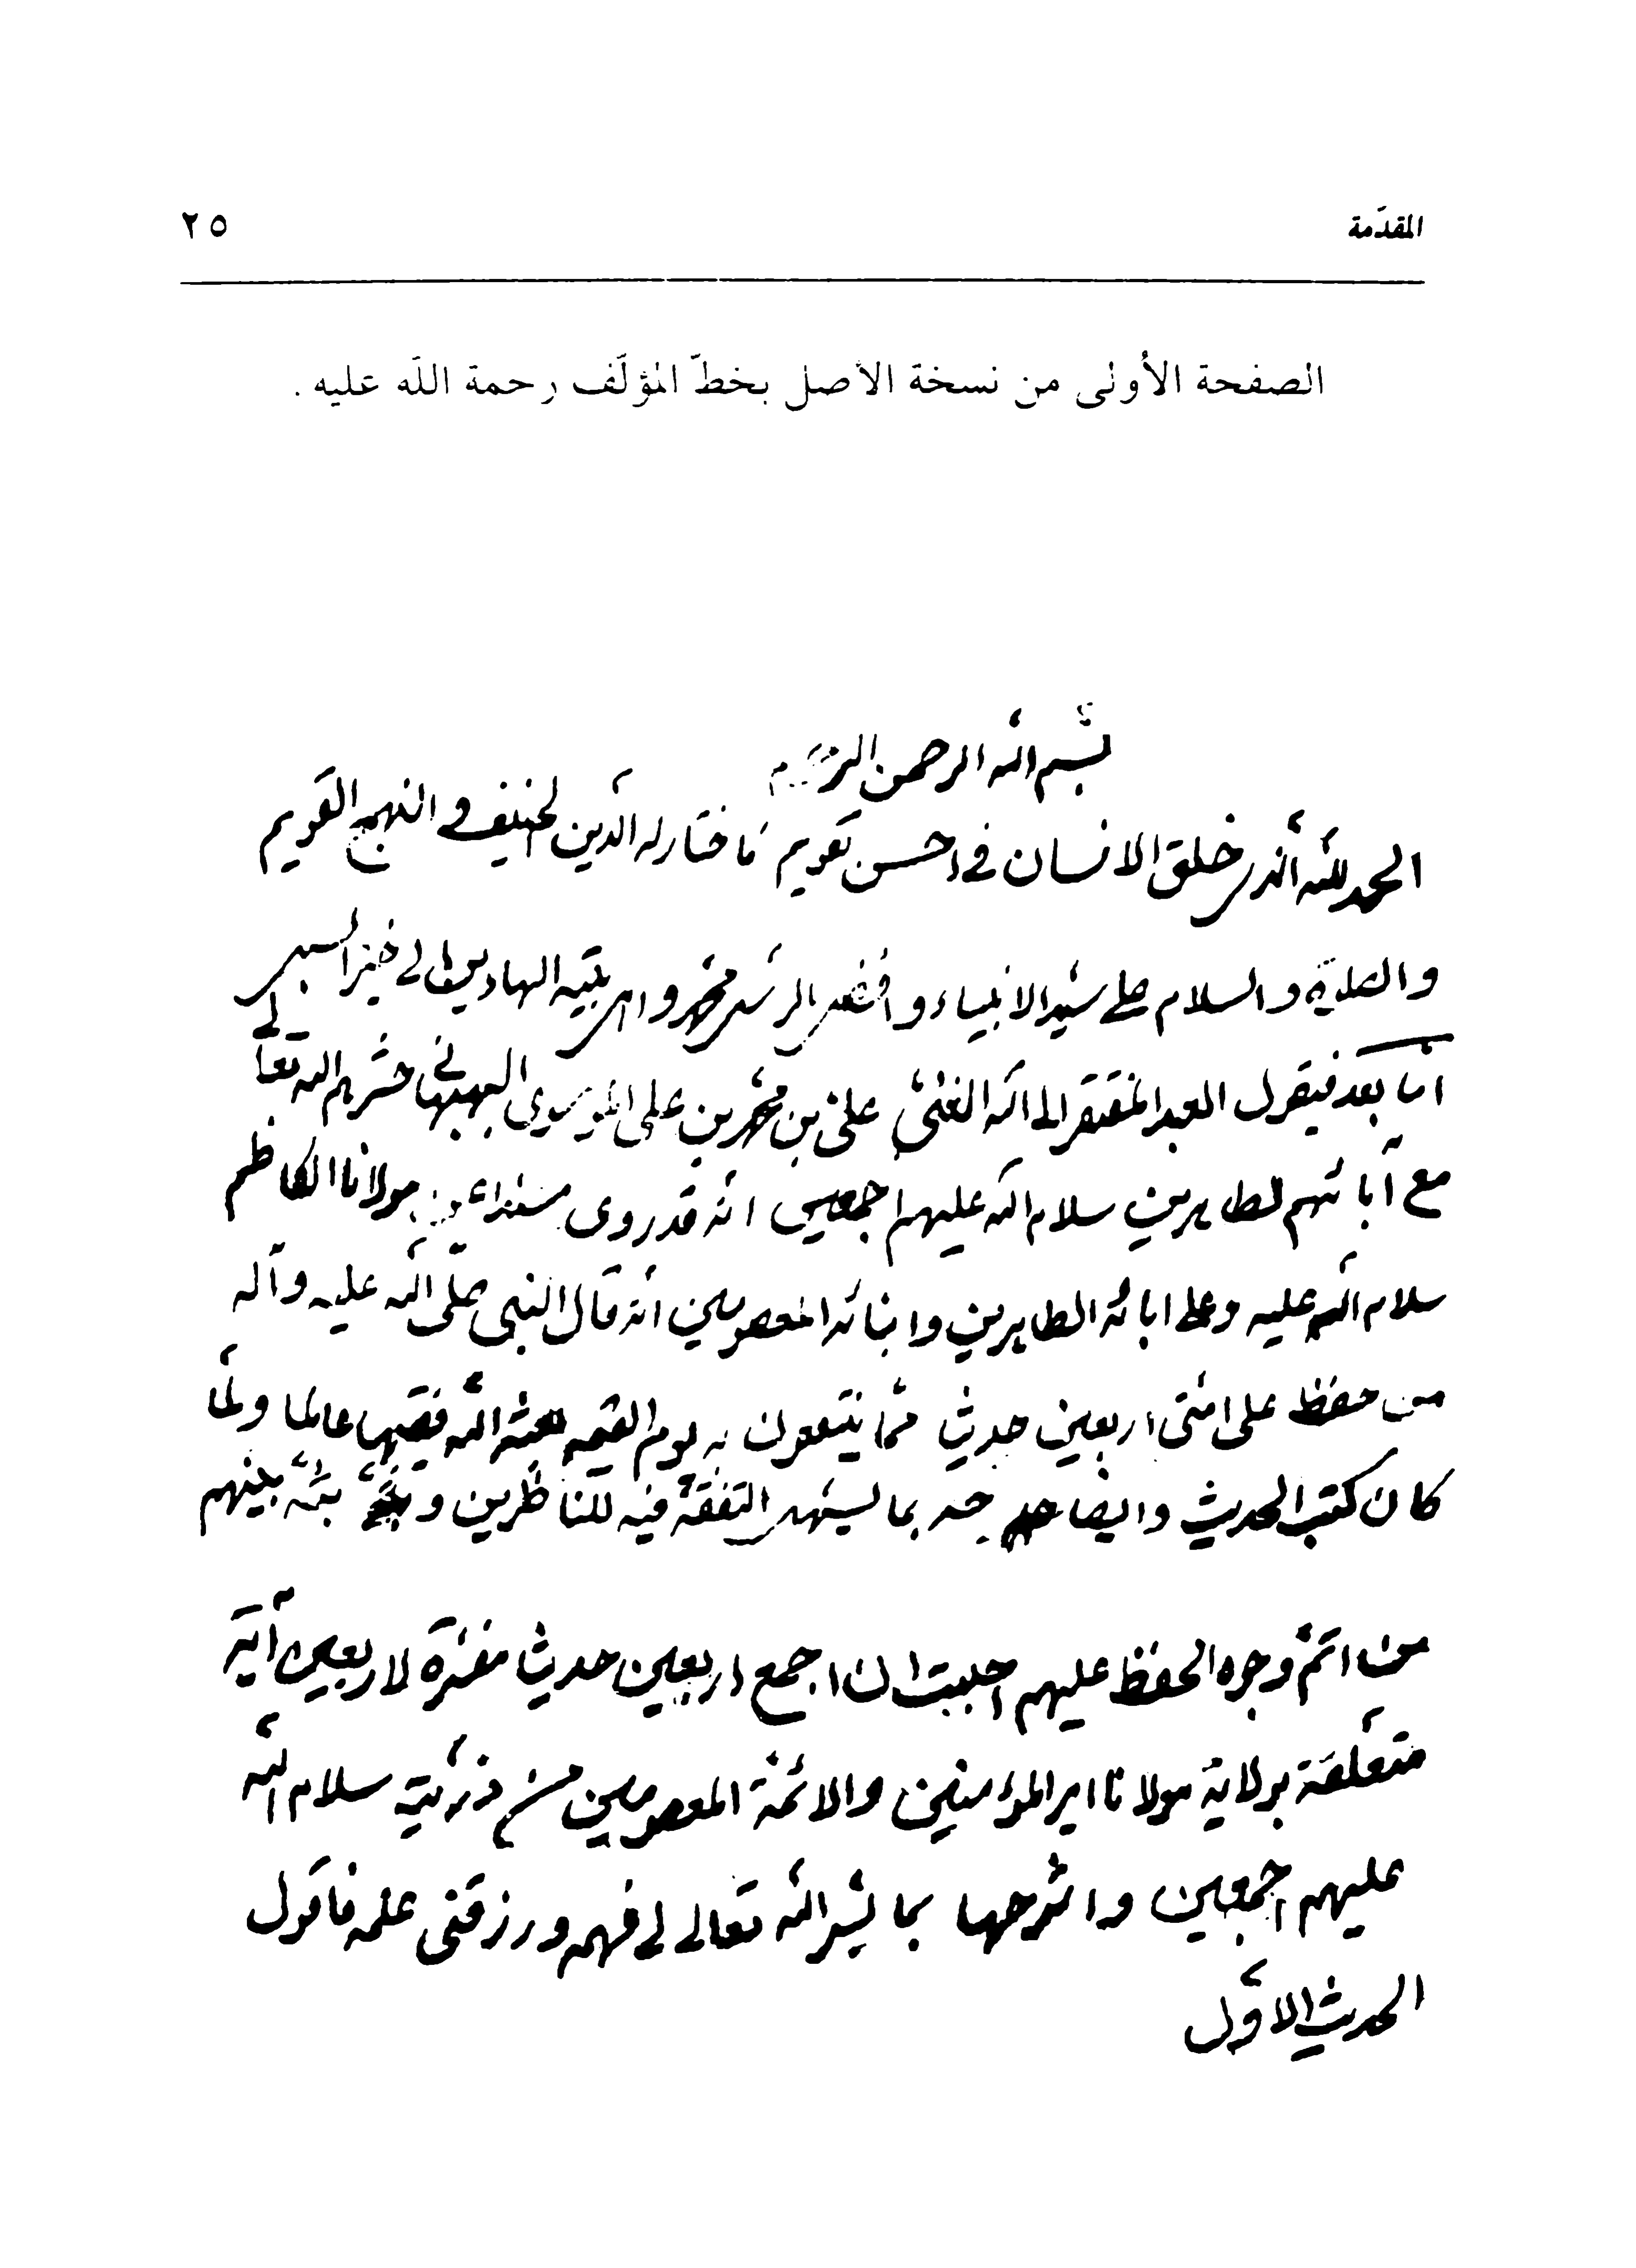 المقدّمة
٢٥
الصفحة الأولى من نسخة الأصل بخطّ المؤلّف رحمة اللّه عليه .
بسم الله الرحمن الرحيم
الحمد لله الذي خلق الانسان في احسن تقويم فاختار له الدين الحنيف والنهج القويم
والصلاة والسلام على سيد الانبياء وافضل الرسل محمد واهل بيته الهادين الى خير السبل
امّا بعد فيقول العبد المفتقر الى الله الغنيّ عليّ بن محمد بن علي الموسوي البهبهاني حشرهم الله تعالى
مع آبائهم الطاهرين سلام الله عليهم اجمعين انه قد روى مسندا عن مولانا الكاظم
سلام الله عليه وعلى ابائه الطاهرين وابنائه المعصومين انه قال النبي صلّى الله عليه وآله
من حفظ على امّتي اربعين حديث ممّا ينتفعون به يوم القيمه بعثه الله فقيها عالما ولمّا
كان كتب الحديث وايضاحه بما يسهل التفقّه فيه للناظرين وبثّه بينهم
من اتمّ وجوه الحفظ عليهم احببت ان اجمع اربعين حديث مفسّرة لاربعين آية
متعلّقة بولاية مولانا امير المؤمنين والائمّة المعصومين من ذرّيّته سلام الله
عليهم اجمعين واشرحها بما يسّر الله تعالى لي فهمه ورزقني علمه فاقول
الحديث الاوّل